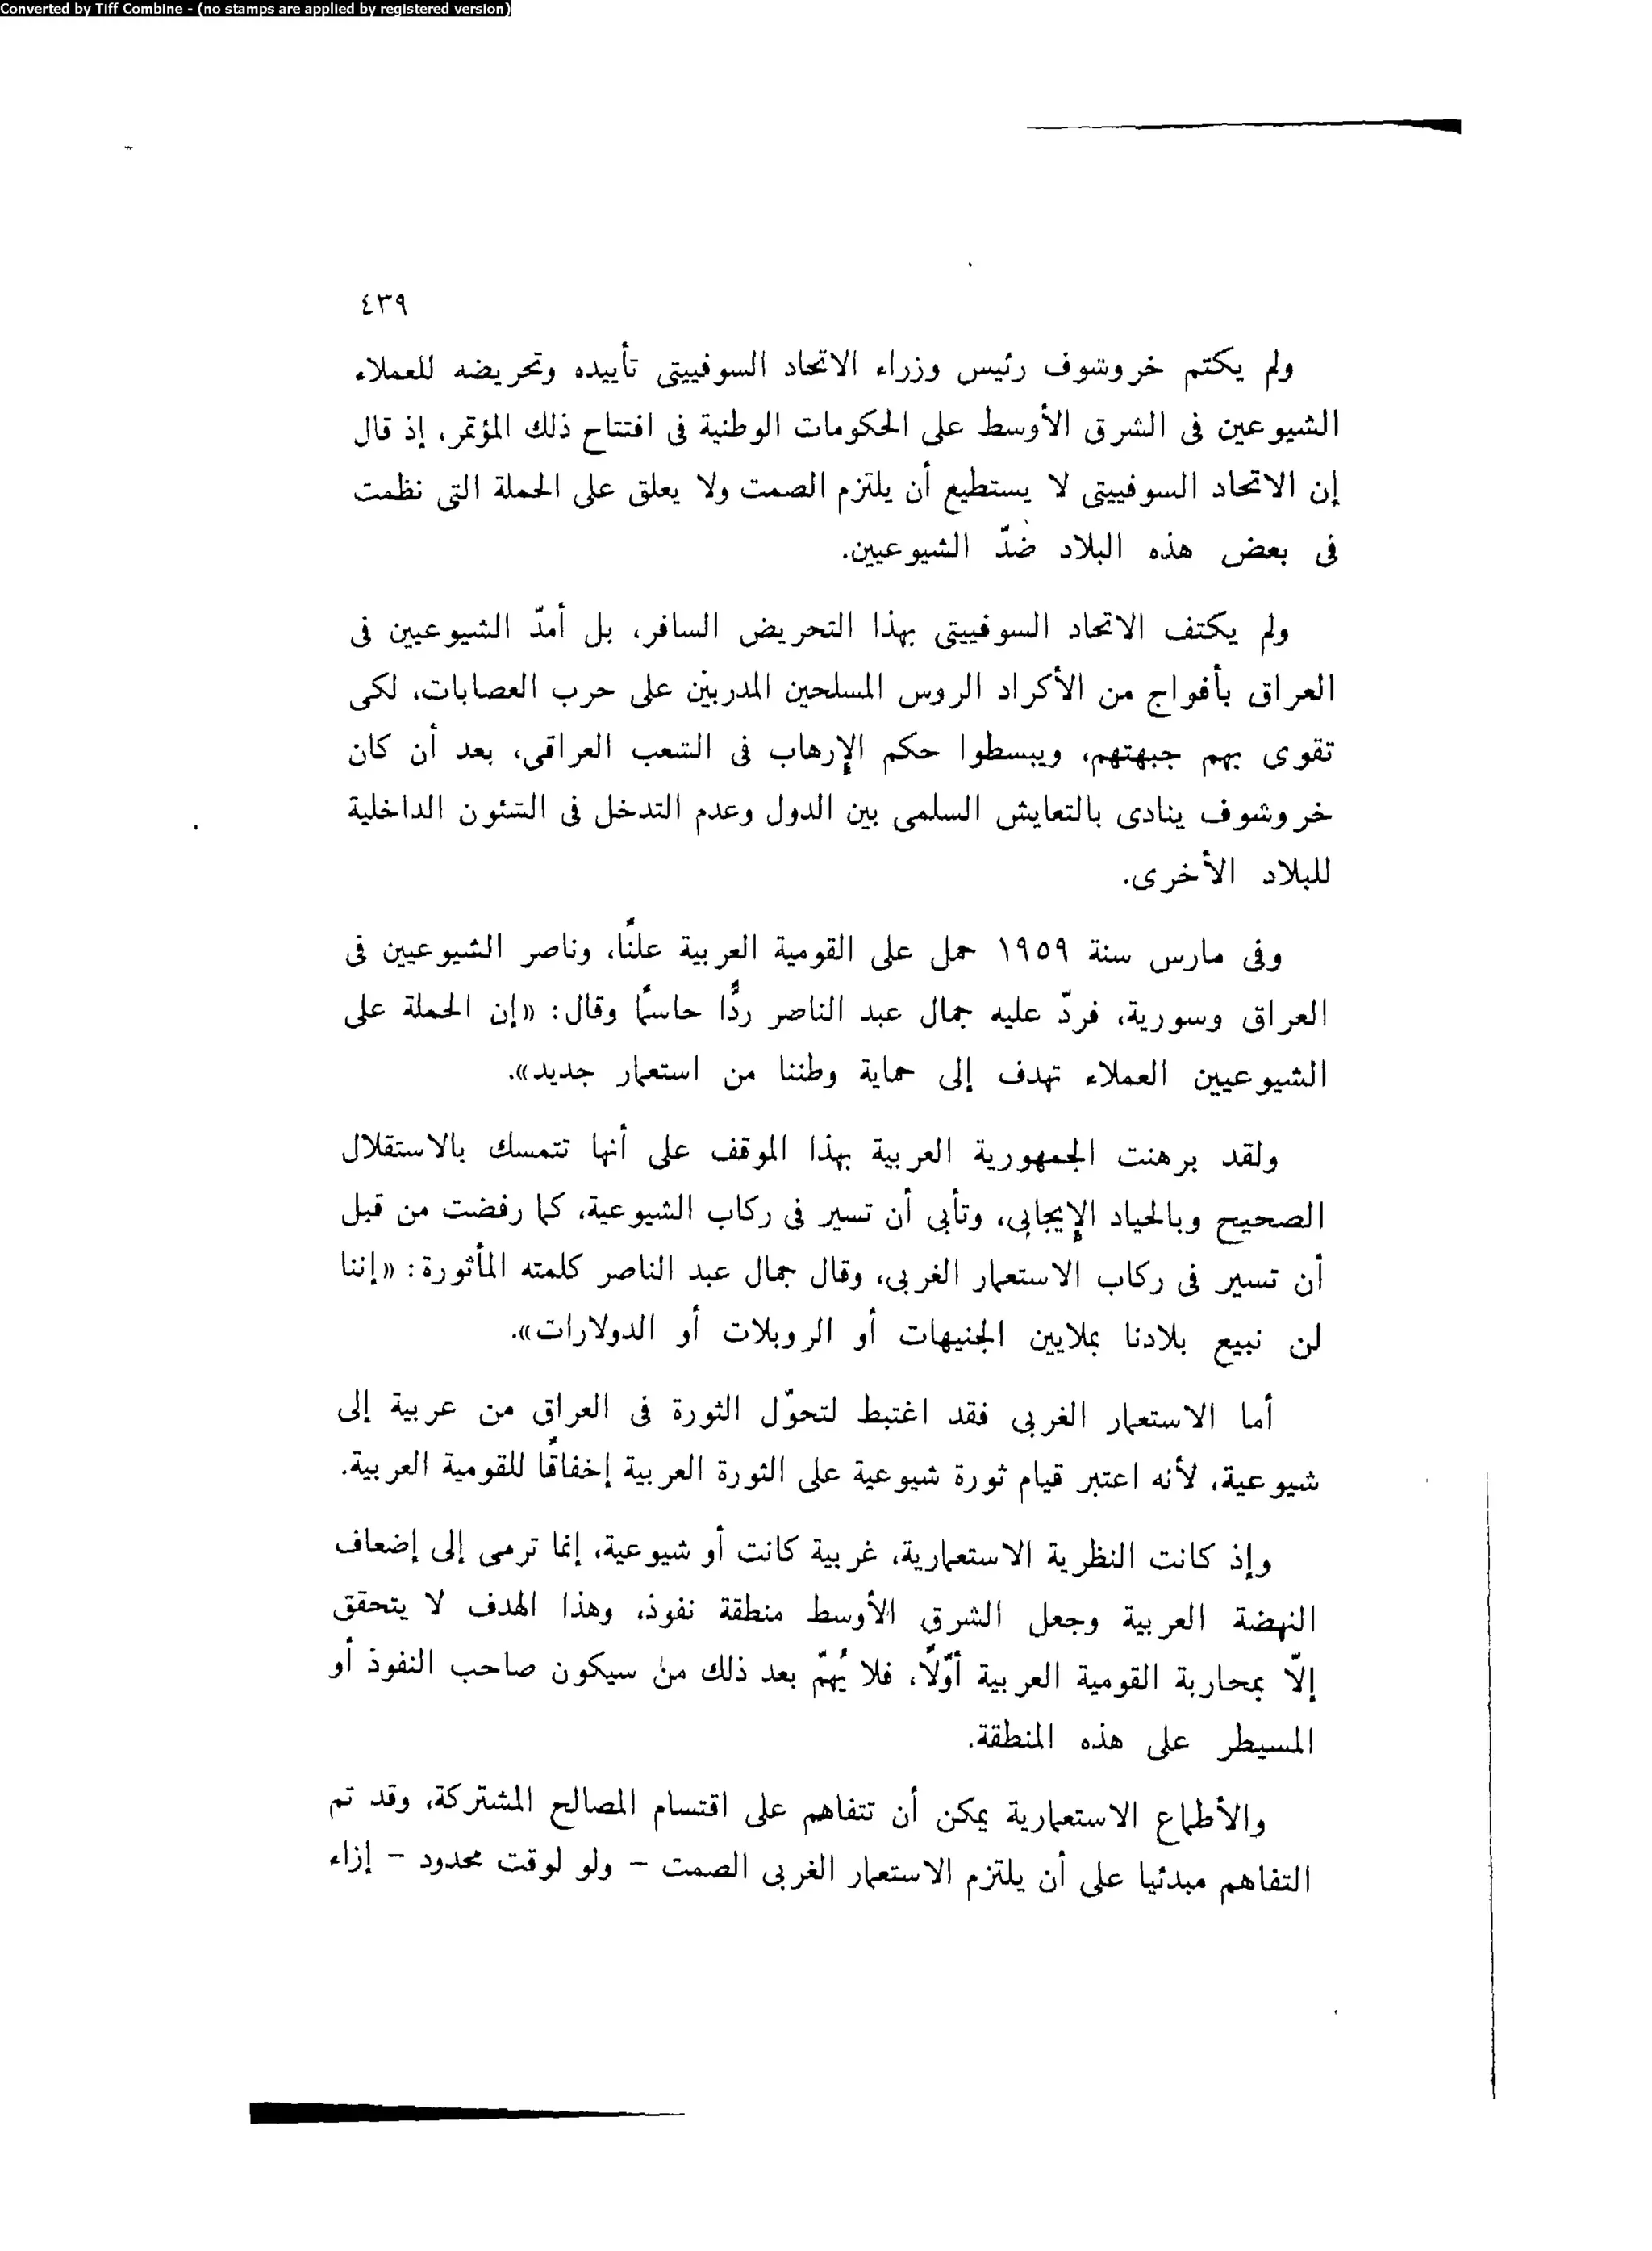 Converted by Tiff Combine - (no stamps are applied by registered version)
٤٣٩
ولم يكتم خروشوف رئيس وزراء الاتحاد السوفييتى تأييده وتحريضه للعملاء
الشيوعيين فى الشرق الأوسط على الحكومات الوطنية فى افتتاح ذلك المؤتمر، إذ قال
إن الاتحاد السوفييتى لا يستطيع أن يلتزم الصمت ولا يعلق على الحملة التى نظمت
فى بعض هذه البلاد ضدّ الشيوعيين.
ولم يكتف الاتحاد السوفييتى بهذا التحريض السافر، بل أمدّ الشيوعيين فى
العراق بأفواج من الأكراد الروس المسلحين المدربين على حرب العصابات، لكى
تقوى بهم جبهتهم، ويبسطوا حكم الإرهاب فى الشعب العراقى، بعد أن كان
خروشوف ينادى بالتعايش السلمى بين الدول وعدم التدخل فى الشئون الداخلية
للبلاد الأخرى.
وفى مارس سنة ١٩٥٩ حمل على القومية العربية علنًا، وناصر الشيوعيين فى
العراق وسورية، فردّ عليه جمال عبد الناصر ردًّا حاسمًا وقال: «إن الحملة على
الشيوعيين العملاء تهدف إلى حماية وطننا من استعمار جديد».
ولقد برهنت الجمهورية العربية بهذا الموقف على أنها تتمسك بالاستقلال
الصحيح وبالحياد الإيجابى، وتأبى أن تسير فى ركاب الشيوعية، كما رفضت من قبل
أن تسير فى ركاب الاستعمار الغربى، وقال جمال عبد الناصر كلمته المأثورة: «إننا
لن نبيع بلادنا بملايين الجنيهات أو الروبلات أو الدولارات».
أما الاستعمار الغربى فقد اغتبط لتحوّل الثورة فى العراق من عربية إلى
شيوعية، لأنه اعتبر قيام ثورة شيوعية على الثورة العربية إخفاقًا للقومية العربية.
وإذ كانت النظرية الاستعمارية، غربية كانت أو شيوعية، إنما ترمى إلى إضعاف
النهضة العربية وجعل الشرق الأوسط منطقة نفوذ، وهذا الهدف لا يتحقق
إلّا بمحاربة القومية العربية أوّلًا، فلا يُهمّ بعد ذلك من سيكون صاحب النفوذ أو
المسيطر على هذه المنطقة.
والأطماع الاستعمارية يمكن أن تتفاهم على اقتسام المصالح المشتركة، وقد تم
التفاهم مبدئيا على أن يلتزم الاستعمار الغربى الصمت - ولو لوقت محدود - إزاء